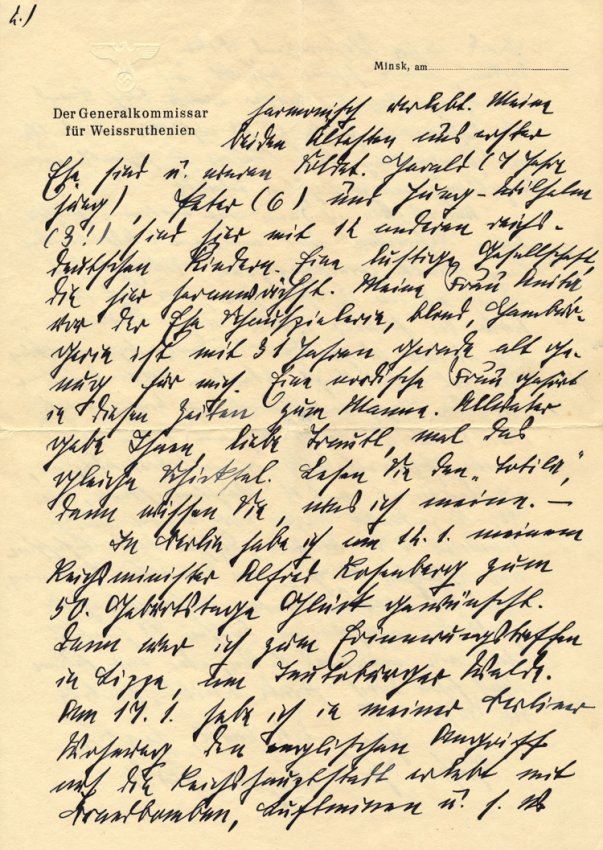 2.)
Minsk, am
Der Generalkommissar
für Weissruthenien
harmonisch verlebt. Meine
beiden Ältesten aus erster
Ehe sind u. werden Soldat. Harald (7 Jahre
jung), Peter (6) und Jung-Wilhelm
(3!) sind hier mit 12 anderen reichs-
deutschen Kindern. Eine lustige Gesellschaft,
die hier heranwächst. Meine Frau Anita
vor der Ehe Schauspielerin, blond, Hambur-
gerin ist mit 31 Jahren gerade alt ge-
nug für mich. Eine nordische Frau gehört
in diesen Zeiten zum Manne. Allvater
gebe Ihnen, liebe Trautl, mal das
gleiche Schicksal. Lesen Sie den „Totila“,
dann wissen Sie, was ich meine. —
In Berlin habe ich am 12. 1. meinem
Reichsminister Alfred Rosenberg zum
50. Geburtstage Glück gewünscht.
Dann war ich zum Erinnerungstreffen
in Lippe, am Teutoburger Walde.
Am 17. 1. habe ich in meiner Berliner
Wohnung den englischen Angriff
auf die Reichshauptstadt erlebt mit
Brandbomben, Luftminen u. s. w